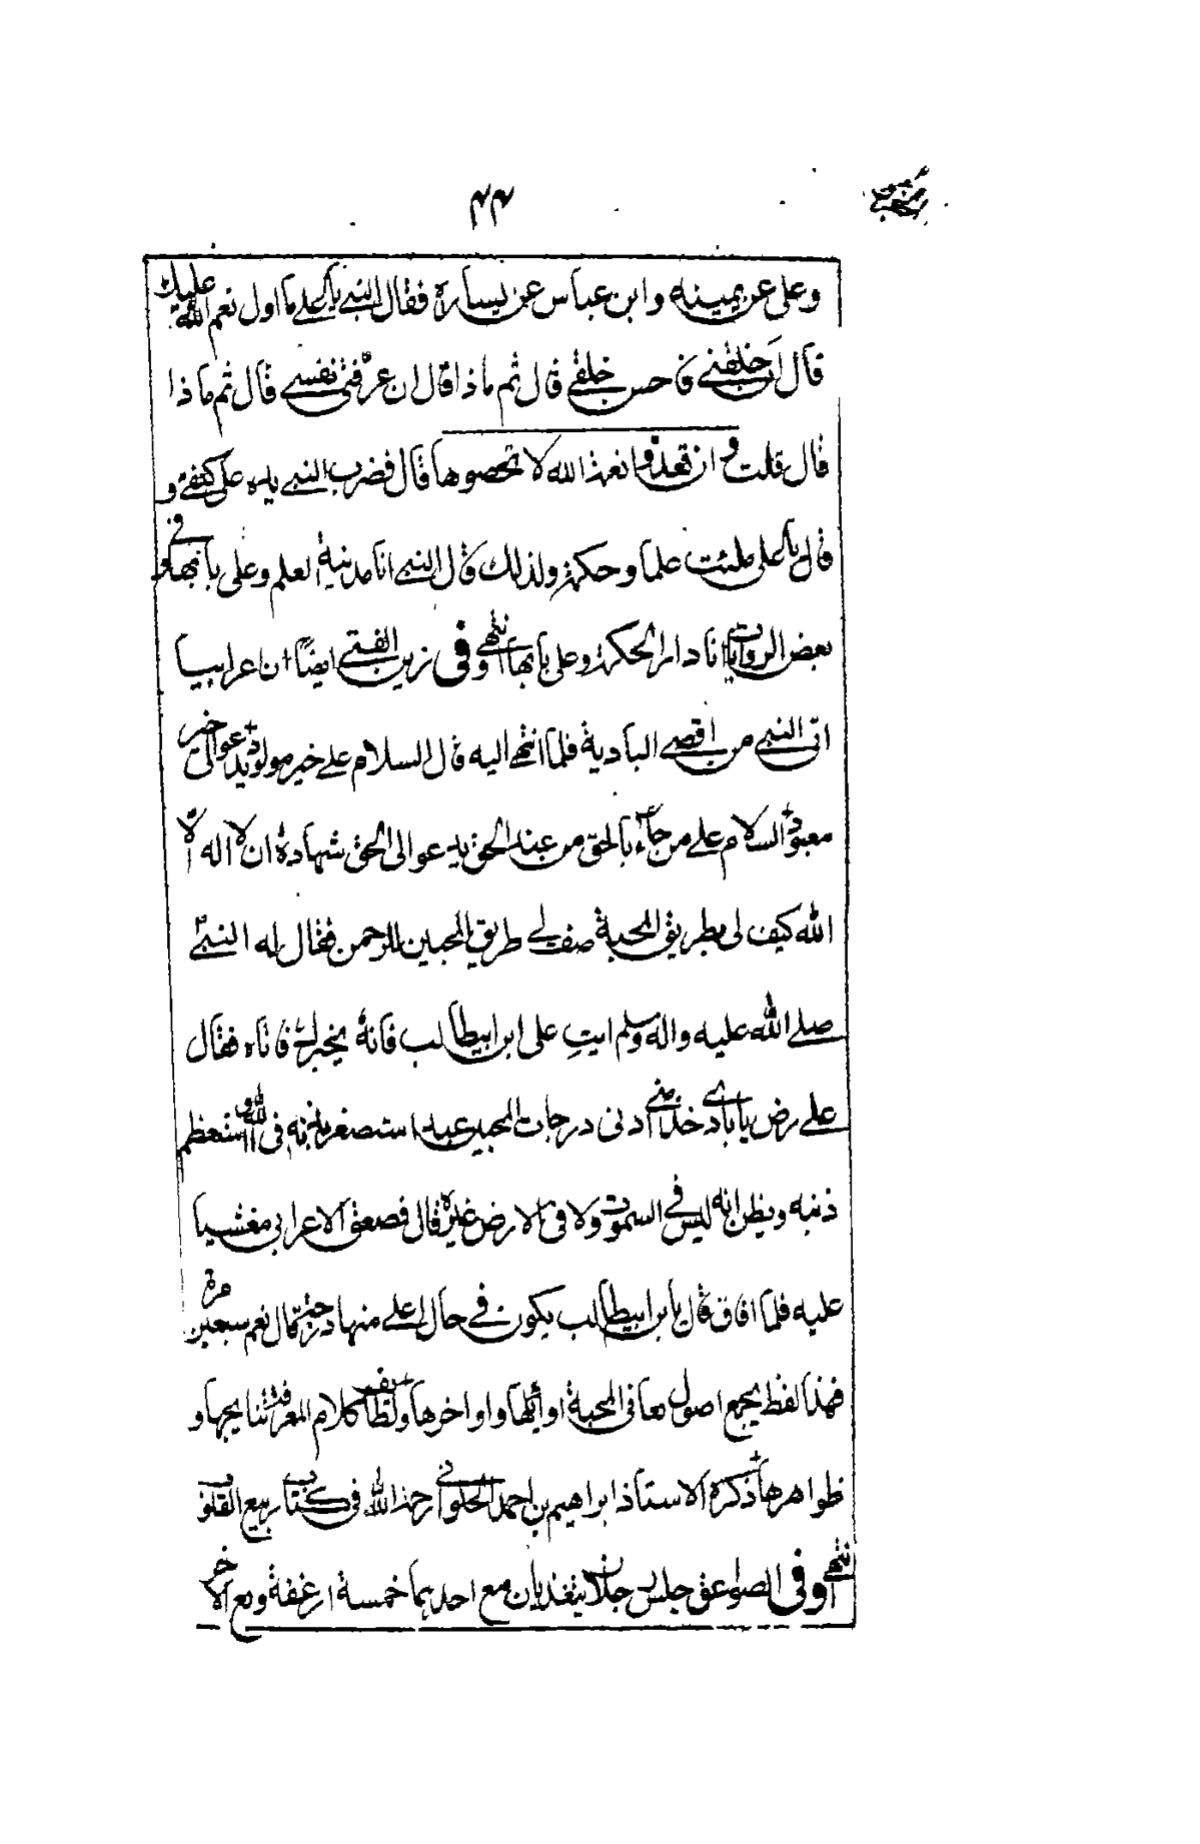 ۴۴
وعلى عن يمينه وابن عباس عن يساره فقال النبي يا علي ما اول نعم الله عليك
قال ان خلقني فاحسن خلقي قال ثم ماذا قال ان عرفني نفسي قال ثم ماذا
قال قلت وان تعدوا نعمة الله لا تحصوها قال فضرب النبي يده على كتفي و
قال يا على ملئت علما وحكمة ولذلك قال النبي انا مدينة العلم وعلى بابها وفي
بعض الروايات انا دار الحكمة وعلى بابها انتهى وفى زين الفتى ايضا ان اعرابيا
اتى النبي من اقصى البادية فلما انتهى اليه قال السلام على خير مولود يدعو الى خير
معبود السلام على من جاء بالحق من عند الحق يدعو الى الحق شهادة ان لا اله الا
الله كيف لى بطريق المحبة صف لي طريق المحبين للرحمن فقال له النبي
صلى الله عليه واله وسلم ايت على ابن ابيطالب فانه يخبرك فاتاه فقال
علي رض يا بادي خذ مني ادنى درجات المحبين عبد استصغر بذنبه فى الله واستعظم
ذنبه ويظن انه ليس في السموات ولا فى الارض غيره قال فصعق الاعرابى مغشيا
عليه فلما افاق قال يا بن ابيطالب يكون في حال اعلى منها درجة قال نعم سبعين مرة
فهذا لفظ يجمع اصول معانى المحبة اوائلها واواخرها ولطائف كلام المعرفة ثنايجها و
ظواهرها ذكره الاستاذ ابراهيم بن احمد الحلوانى رحمة الله فى كتاب ربيع القلوب
انتهى وفى الصواعق جلس رجلان يتغذيان مع احدهما خمسة ارغفة ومع الاخر